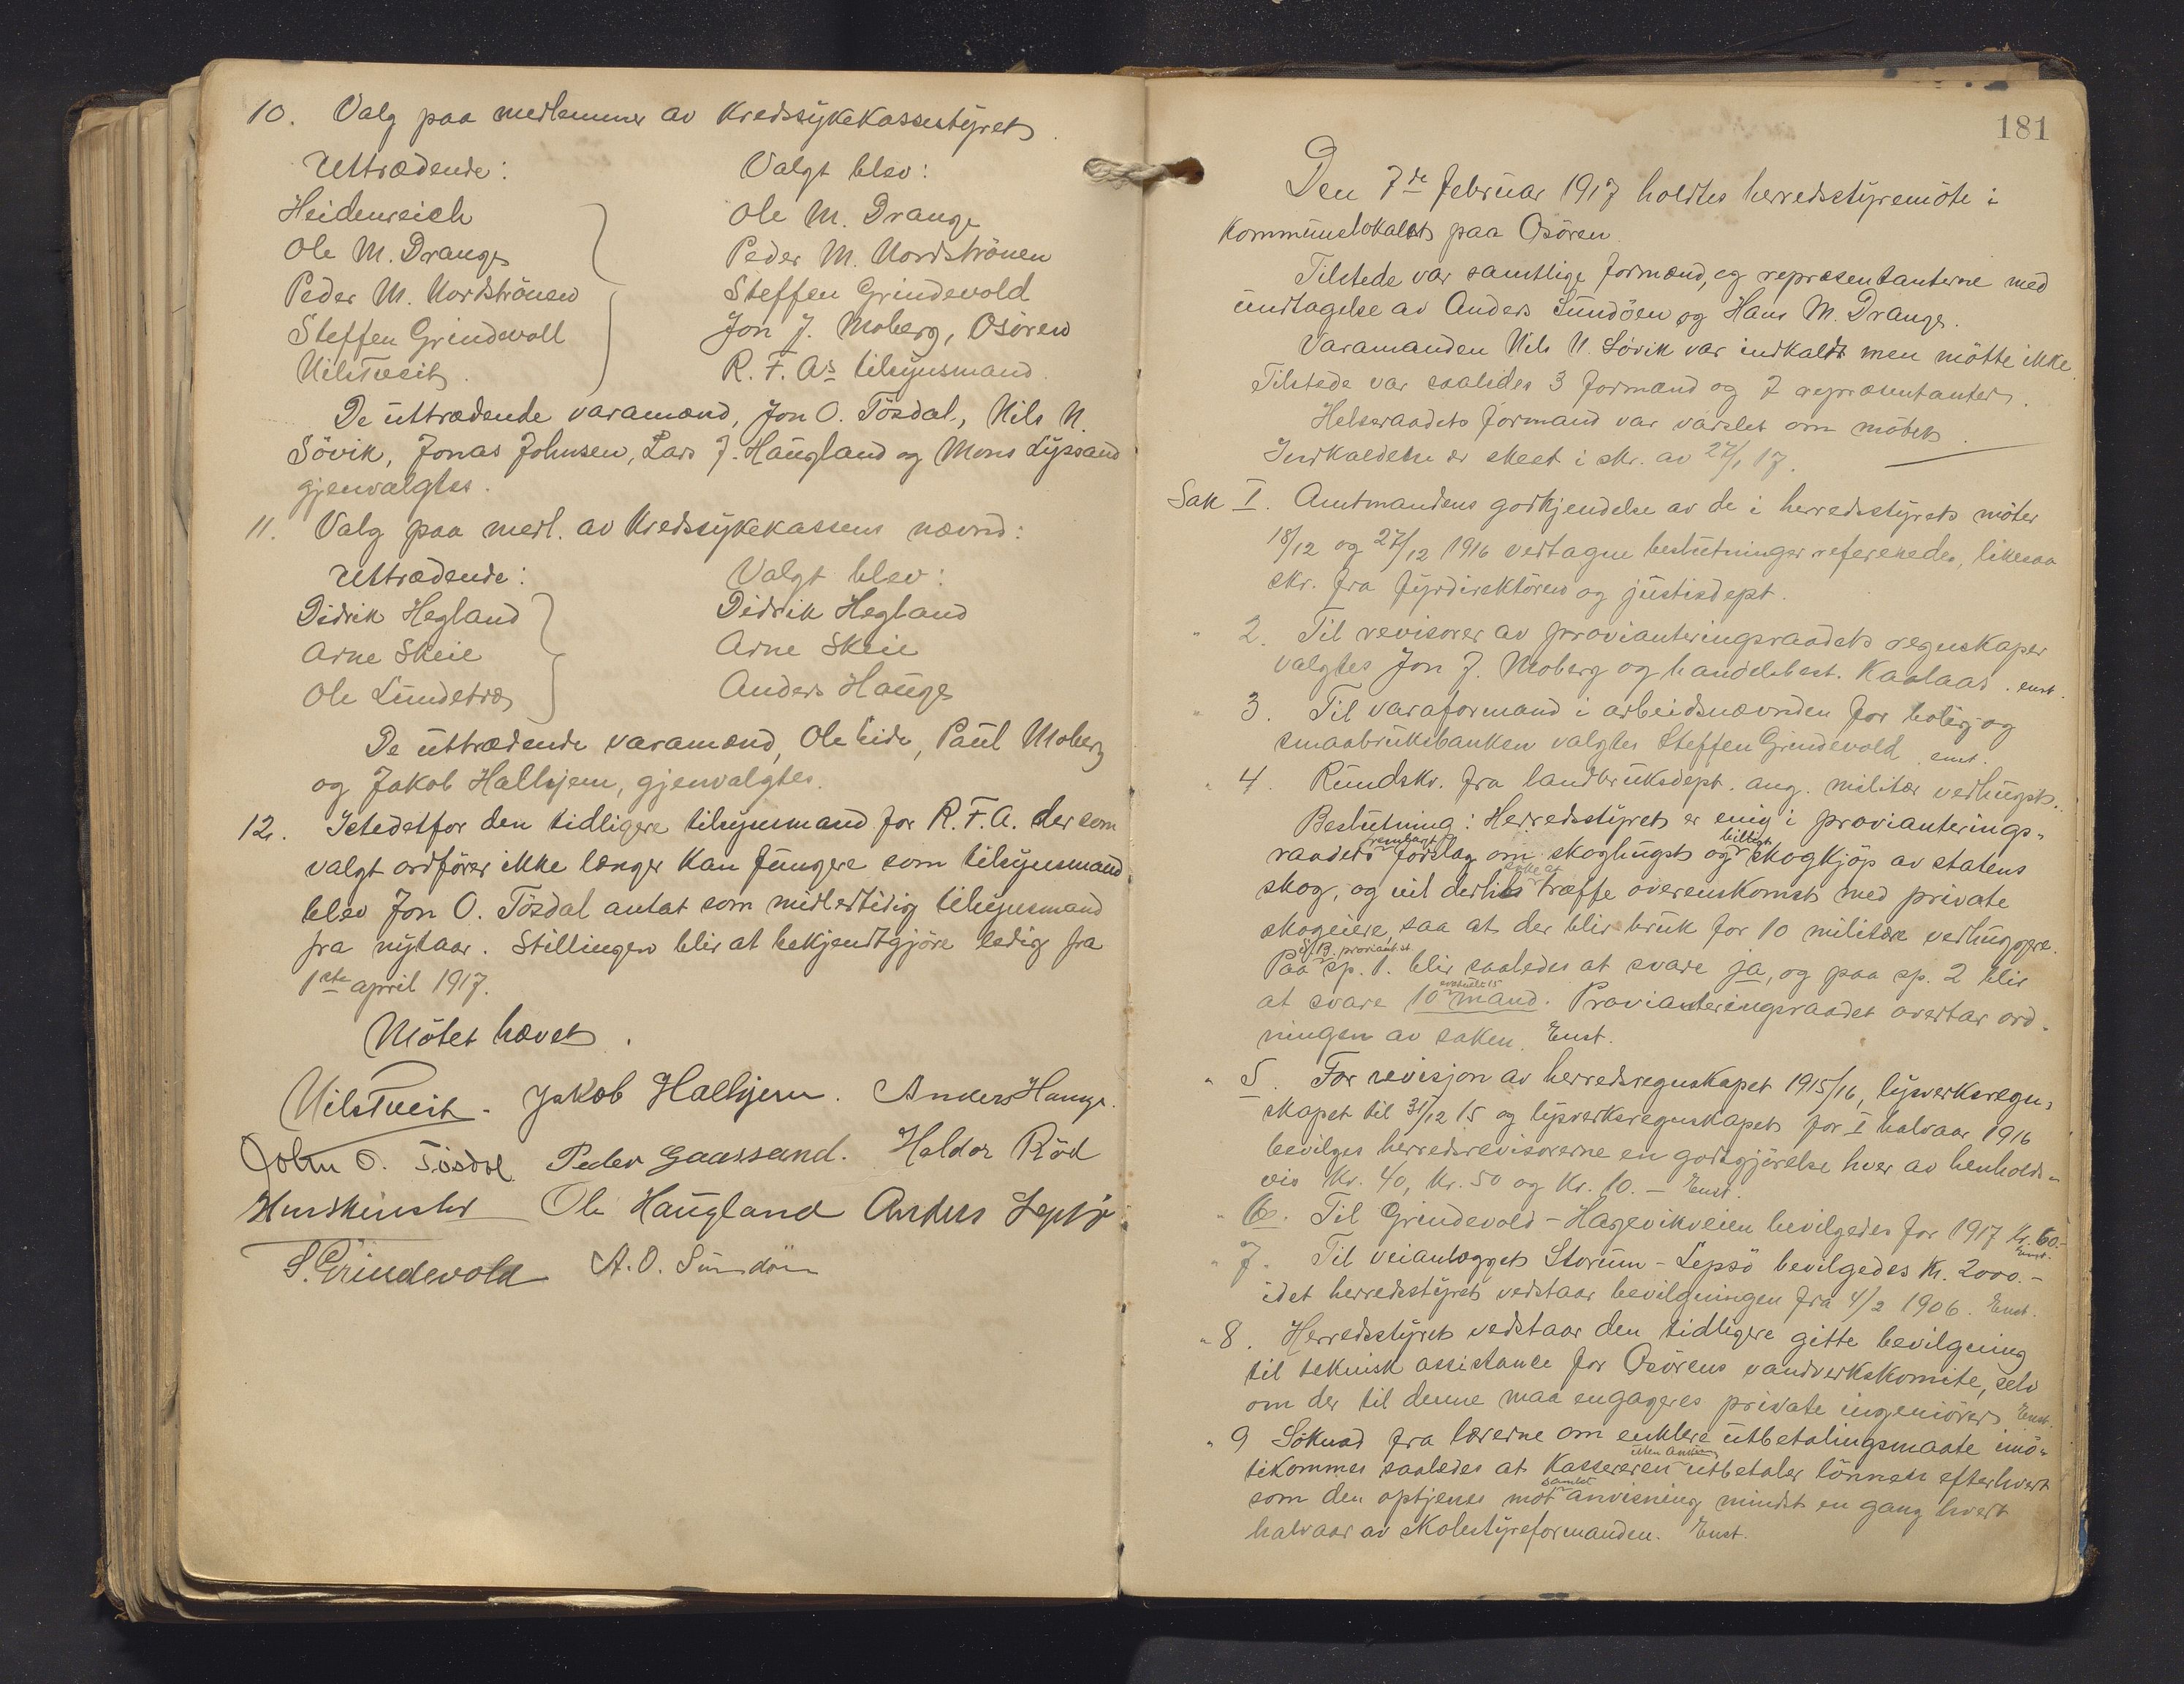 10. Valg paa medlemmer av Kredssykekassestyret.
Uttrædende:
Heidenreich
Ole M. Drange
Peder M. Nordströnen
Steffen Grindevoll
Nils Tveit.
Valgt blev:
Ole M. Drange
Peder M. Nordströnen
Steffen Grindevold
Jon J. Moberg, Osören
R. F. As tilsynsmand.
De uttrædende varamænd, Jon O. Tösdal, Nils N.
Sövik, Jonas Johnsen, Lars J. Haugland og Mons Lyssand
gjenvalgtes.
11. Valg paa medl. av Kredssykekassens nævnd:
Uttrædende:
Didrik Hegland
Arne Skeie
Ole Lundetræ
Valgt blev:
Didrik Hegland
Arne Skeie
Anders Hauge
De uttrædende varamænd, Ole Eide, Paul Moberg
og Jakob Halhjem, gjenvalgtes.
12. Istedetfor den tidligere tilsynsmand for R.F.A. der som
valgt ordförer ikke længer kan fungere som tilsynsmand
blev Jon O. Tösdal antat som midlertidig tilsynsmand
fra nytaar. Stillingen blir at bekjendtgjöre ledig fra
1ste april 1917.
Mötet hævet.
Nils Tveit. Jakob Halhjem. Anders Hauge.
John O. Tösdal Peder Gaassand. Haldor Röd
Ole Haugland Anders Lepsö
S. Grindevold A. O. Sundöen
181
Den 7de februar 1917 holdtes herredsstyremöte i
kommunelokalet paa Osören.
Tilstede var samtlige formænd, og repræsentanterne med
undtagelse av Anders Sundöen og Hans M. Drange.
Varamanden Nils N. Sövik var indkaldt men mötte ikke.
Tilstede var saaledes 3 formænd og 7 repræsentanter.
Helseraadets formand var varslet om mötet.
Indkaldelse er skeet i skr. av 27/1 17.
Sak I. Amtmandens godkjendelse av de i herredsstyrets möter
18/12 og 27/12 1916 vedtagne beslutninger refereredes, likesaa
skr. fra fyrdirektören og justisdept.
" 2. Til revisorer av provianteringsraadets regnskaper
valgtes Jon J. Moberg og handelsbest. Kaalaas. enst.
" 3. Til varaformand i arbeidsnævnden for bolig- og
smaabruksbanken valgtes Steffen Grindevold. enst.
" 4. Rundskr. fra landbruksdept. ang. militær vedhugst.
Beslutning: Herredsstyret er enig i provianterings-
raadets forslag om skoghugst og billigt skogkjöp av statens
skog, og vil dertil söke at træffe overenskomst med private
skogeiere, saa at der blir bruk for 10 militære vedhuggere.
Paa sp. 1. blir saaledes at svare ja, og paa sp. 2 blir
at svare 10 eventuelt 15 mand. Provianteringsraadet overtar ord-
ningen av saken. Enst.
" 5. For revisjon av herredsregnskapet 1915/16, lysverksregn-
skapet til 31/12 15 og lysverksregnskapet for I halvaar 1916
bevilges herredsrevisorerne en godtgjörelse hver av henholds-
vis Kr. 40, Kr. 50 og Kr. 10.- Enst.
" 6. Til Grindevold - Hagevikveien bevilgedes for 1917 Kr. 60.-
Enst.
" 7. Til veianlægget Storum - Lepsö bevilgedes Kr. 2000.-
idet herredsstyret vedstaar bevilgningen fra 4/2 1906. Enst.
" 8. Herredsstyret vedstaar den tidligere gitte bevilgning
til teknisk assistance for Osörens vandverkskomite, selv
om der til denne maa engageres private ingeniörer. Enst.
" 9 Söknad fra lærerne om enklere utbetalingsmaate imö-
tekommes saaledes at kassereren uten anvisn. utbetaler lönnen efterhvert
som den optjenes mot samlet anvisning mindst en gang hvert
halvaar av skolestyreformanden. Enst.